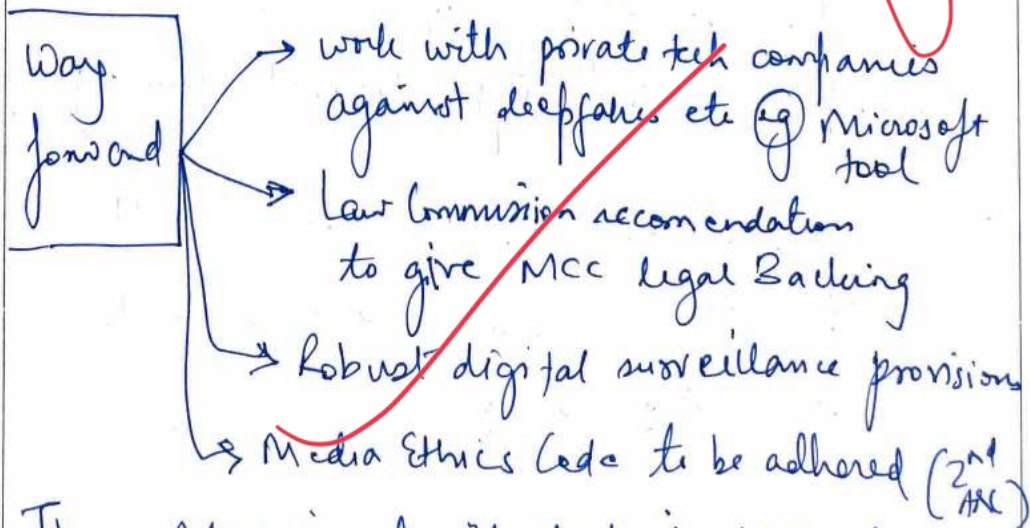 Way
forward
work with private tech companies
against deepfakes etc eg Microsoft
tool
Law Commission recomendation
to give MCC legal Backing
Robust digital surveillance provisions
Media Ethics Code to be adhered (2nd
ARC)